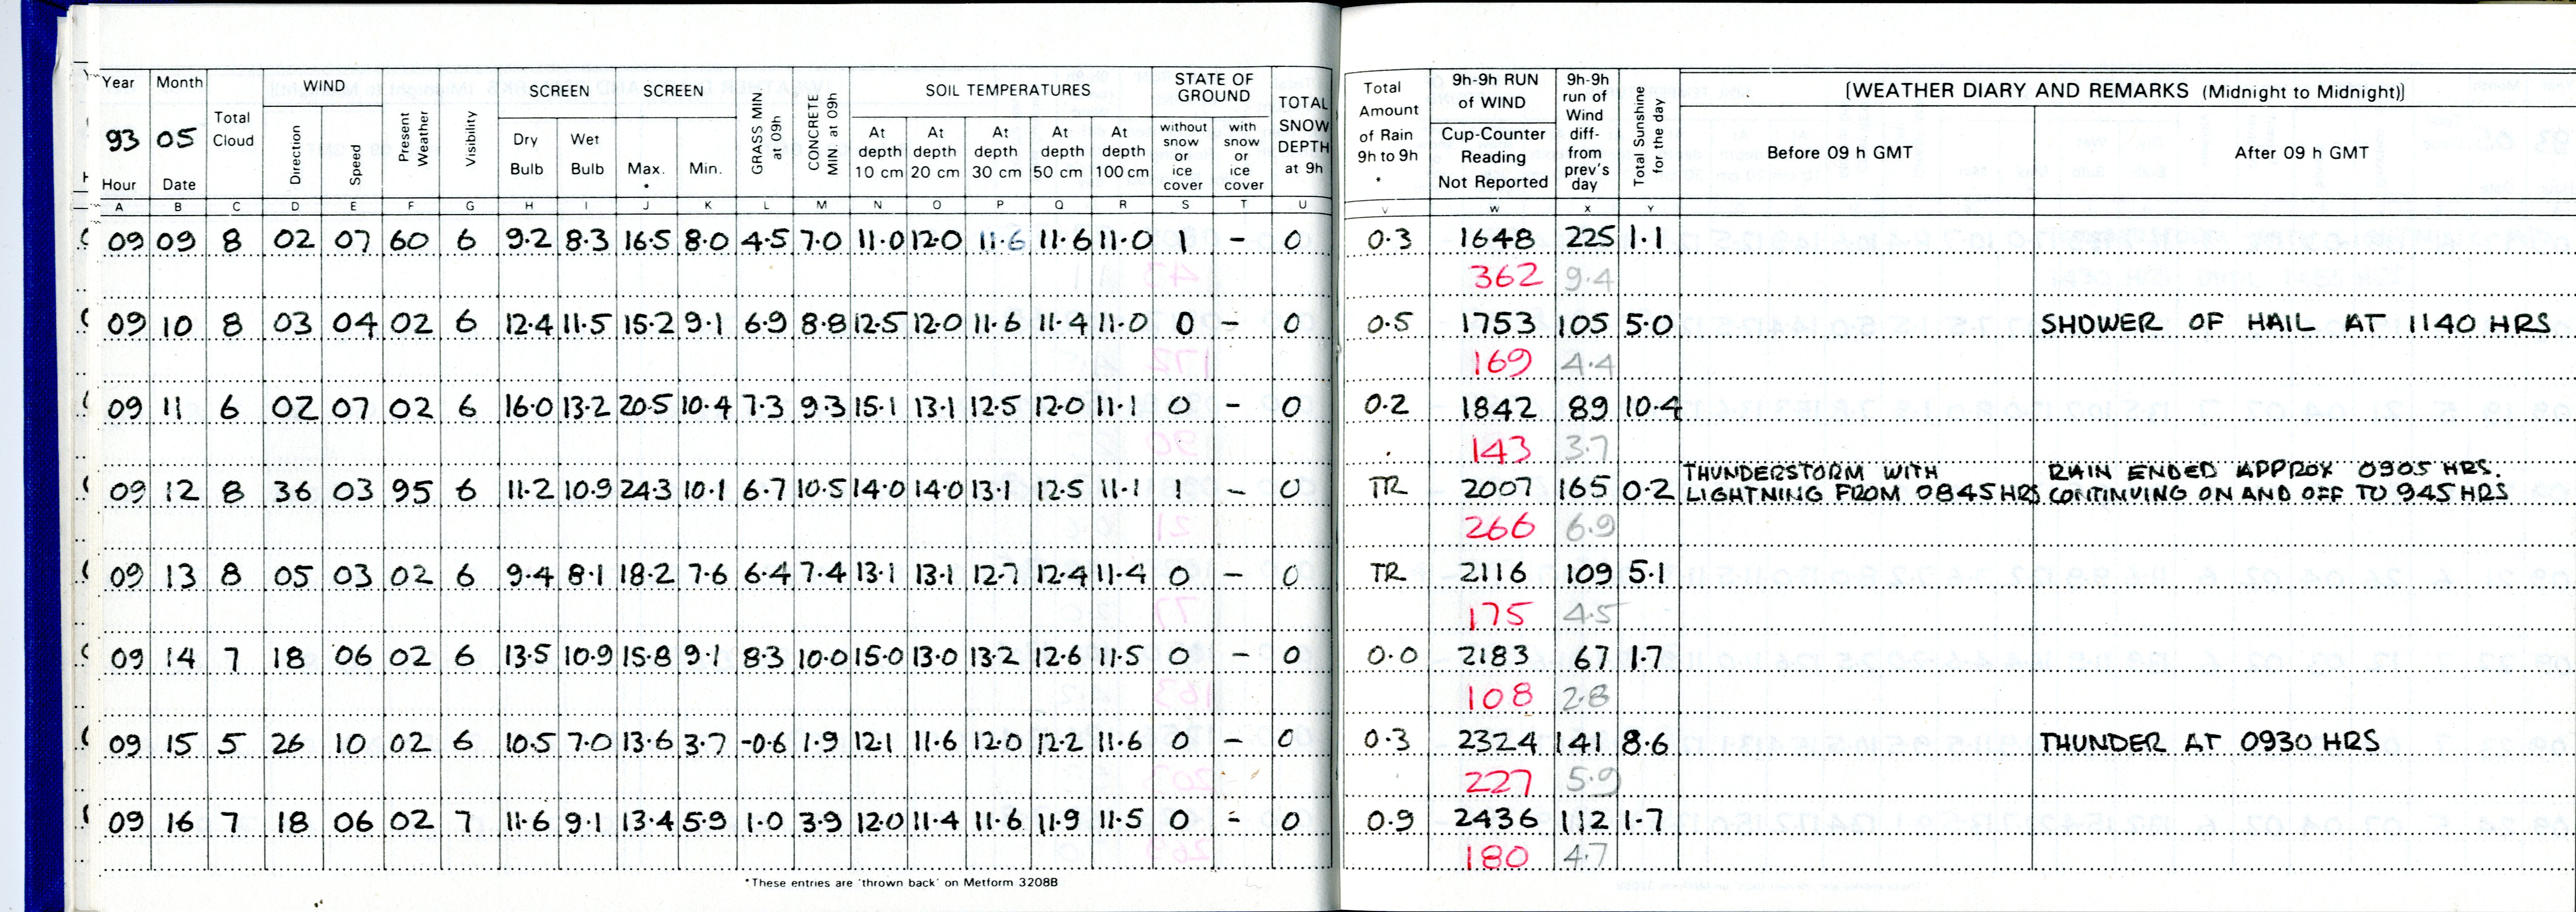 Year Month WIND SCREEN SCREEN SOIL TEMPERATURES STATE OF GROUND TOTAL SNOW DEPTH at 9h Total Amount of Rain 9h to 9h * 9h-9h RUN of WIND 9h-9h run of Wind diff- from prev's day Total Sunshine for the day [WEATHER DIARY AND REMARKS (Midnight to Midnight)]
93 05 Total Cloud Direction Speed Present Weather Visibility Dry Bulb Wet Bulb Max. * Min. GRASS MIN at 09h CONCRETE MIN. at 09h At depth 10 cm At depth 20 cm At depth 30 cm At depth 50 cm At depth 100 cm without snow or ice cover with snow or ice cover Cup-Counter Reading Not Reported Before 09 h GMT After 09 h GMT
Hour Date
A B C D E F G H I J K L M N O P Q R S T U V W X Y
09 09 8 02 07 60 6 9.2 8.3 16.5 8.0 4.5 7.0 11.0 12.0 11.6 11.6 11.0 1 - 0 0.3 1648 225 1.1
362 9.4
09 10 8 03 04 02 6 12.4 11.5 15.2 9.1 6.9 8.8 12.5 12.0 11.6 11.4 11.0 0 - 0 0.5 1753 105 5.0 SHOWER OF HAIL AT 1140 HRS
169 4.4
09 11 6 02 07 02 6 16.0 13.2 20.5 10.4 7.3 9.3 15.1 13.1 12.5 12.0 11.1 0 - 0 0.2 1842 89 10.4
143 3.7
THUNDERSTORM WITH RAIN ENDED APPROX 0905 HRS.
09 12 8 36 03 95 6 11.2 10.9 24.3 10.1 6.7 10.5 14.0 14.0 13.1 12.5 11.1 1 - 0 TR 2007 165 0.2 LIGHTNING FROM 0845 HRS CONTINUING ON AND OFF TO 945 HRS
266 6.9
09 13 8 05 03 02 6 9.4 8.1 18.2 7.6 6.4 7.4 13.1 13.1 12.7 12.4 11.4 0 - 0 TR 2116 109 5.1
175 4.5
09 14 7 18 06 02 6 13.5 10.9 15.8 9.1 8.3 10.0 15.0 13.0 13.2 12.6 11.5 0 - 0 0.0 2183 67 1.7
108 2.8
09 15 5 26 10 02 6 10.5 7.0 13.6 3.7 -0.6 1.9 12.1 11.6 12.0 12.2 11.6 0 - 0 0.3 2324 141 8.6 THUNDER AT 0930 HRS
227 5.9
09 16 7 18 06 02 7 11.6 9.1 13.4 5.9 1.0 3.9 12.0 11.4 11.6 11.9 11.5 0 - 0 0.9 2436 112 1.7
180 4.7
*These entries are 'thrown back' on Metform 3208B